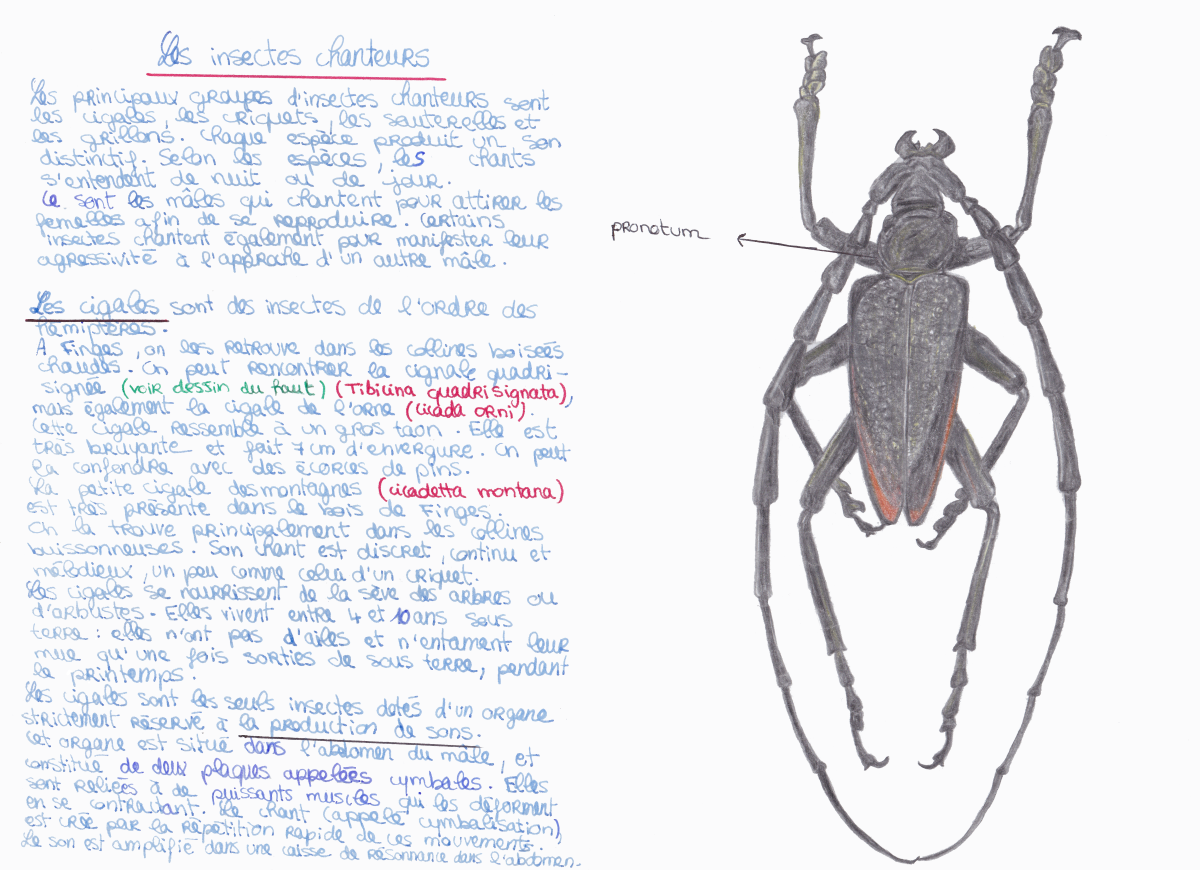 Les insectes chanteurs
Les principaux groupes d'insectes chanteurs sont
les cigales, les criquets, les sauterelles et
les grillons. Chaque espèce produit un son
distinctif. Selon les espèces, les chants
s'entendent de nuit ou de jour.
Ce sont les mâles qui chantent pour attirer les
femelles afin de se reproduire. Certains
insectes chantent également pour manifester leur
agressivité à l'approche d'un autre mâle.
Les cigales sont des insectes de l'ordre des
hémiptères.
A Finges, on les retrouve dans les collines boisées
chaudes. On peut rencontrer la cignale quadri-
signée (voir dessin du haut) (Tibicina quadrisignata),
mais également la cigale de l'orne (cicada orni).
Cette cigale ressemble à un gros taon. Elle est
très bruyante et fait 7 cm d'envergure. On peut
la confondre avec des écorces de pins.
La petite cigale des montagnes (cicadetta montana)
est très présente dans le bois de Finges.
On la trouve principalement dans les collines
buissonneuses. Son chant est discret, continu et
mélodieux, un peu comme celui d'un criquet.
Les cigales se nourrissent de la sève des arbres ou
d'arbustes. Elles vivent entre 4 et 10 ans sous
terre : elles n'ont pas d'ailes et n'entament leur
mue qu'une fois sorties de sous terre, pendant
le printemps.
Les cigales sont les seuls insectes dotés d'un organe
strictement réservé à la production de sons.
Cet organe est situé dans l'abdomen du mâle, et
constitué de deux plaques appelées cymbales. Elles
sont reliées à de puissants muscles qui les déforment
en se contractant. Le chant (appelé cymbalisation)
est créé par la répétition rapide de ces mouvements.
Le son est amplifié dans une caisse de résonnance dans l'abdomen.
pronotum